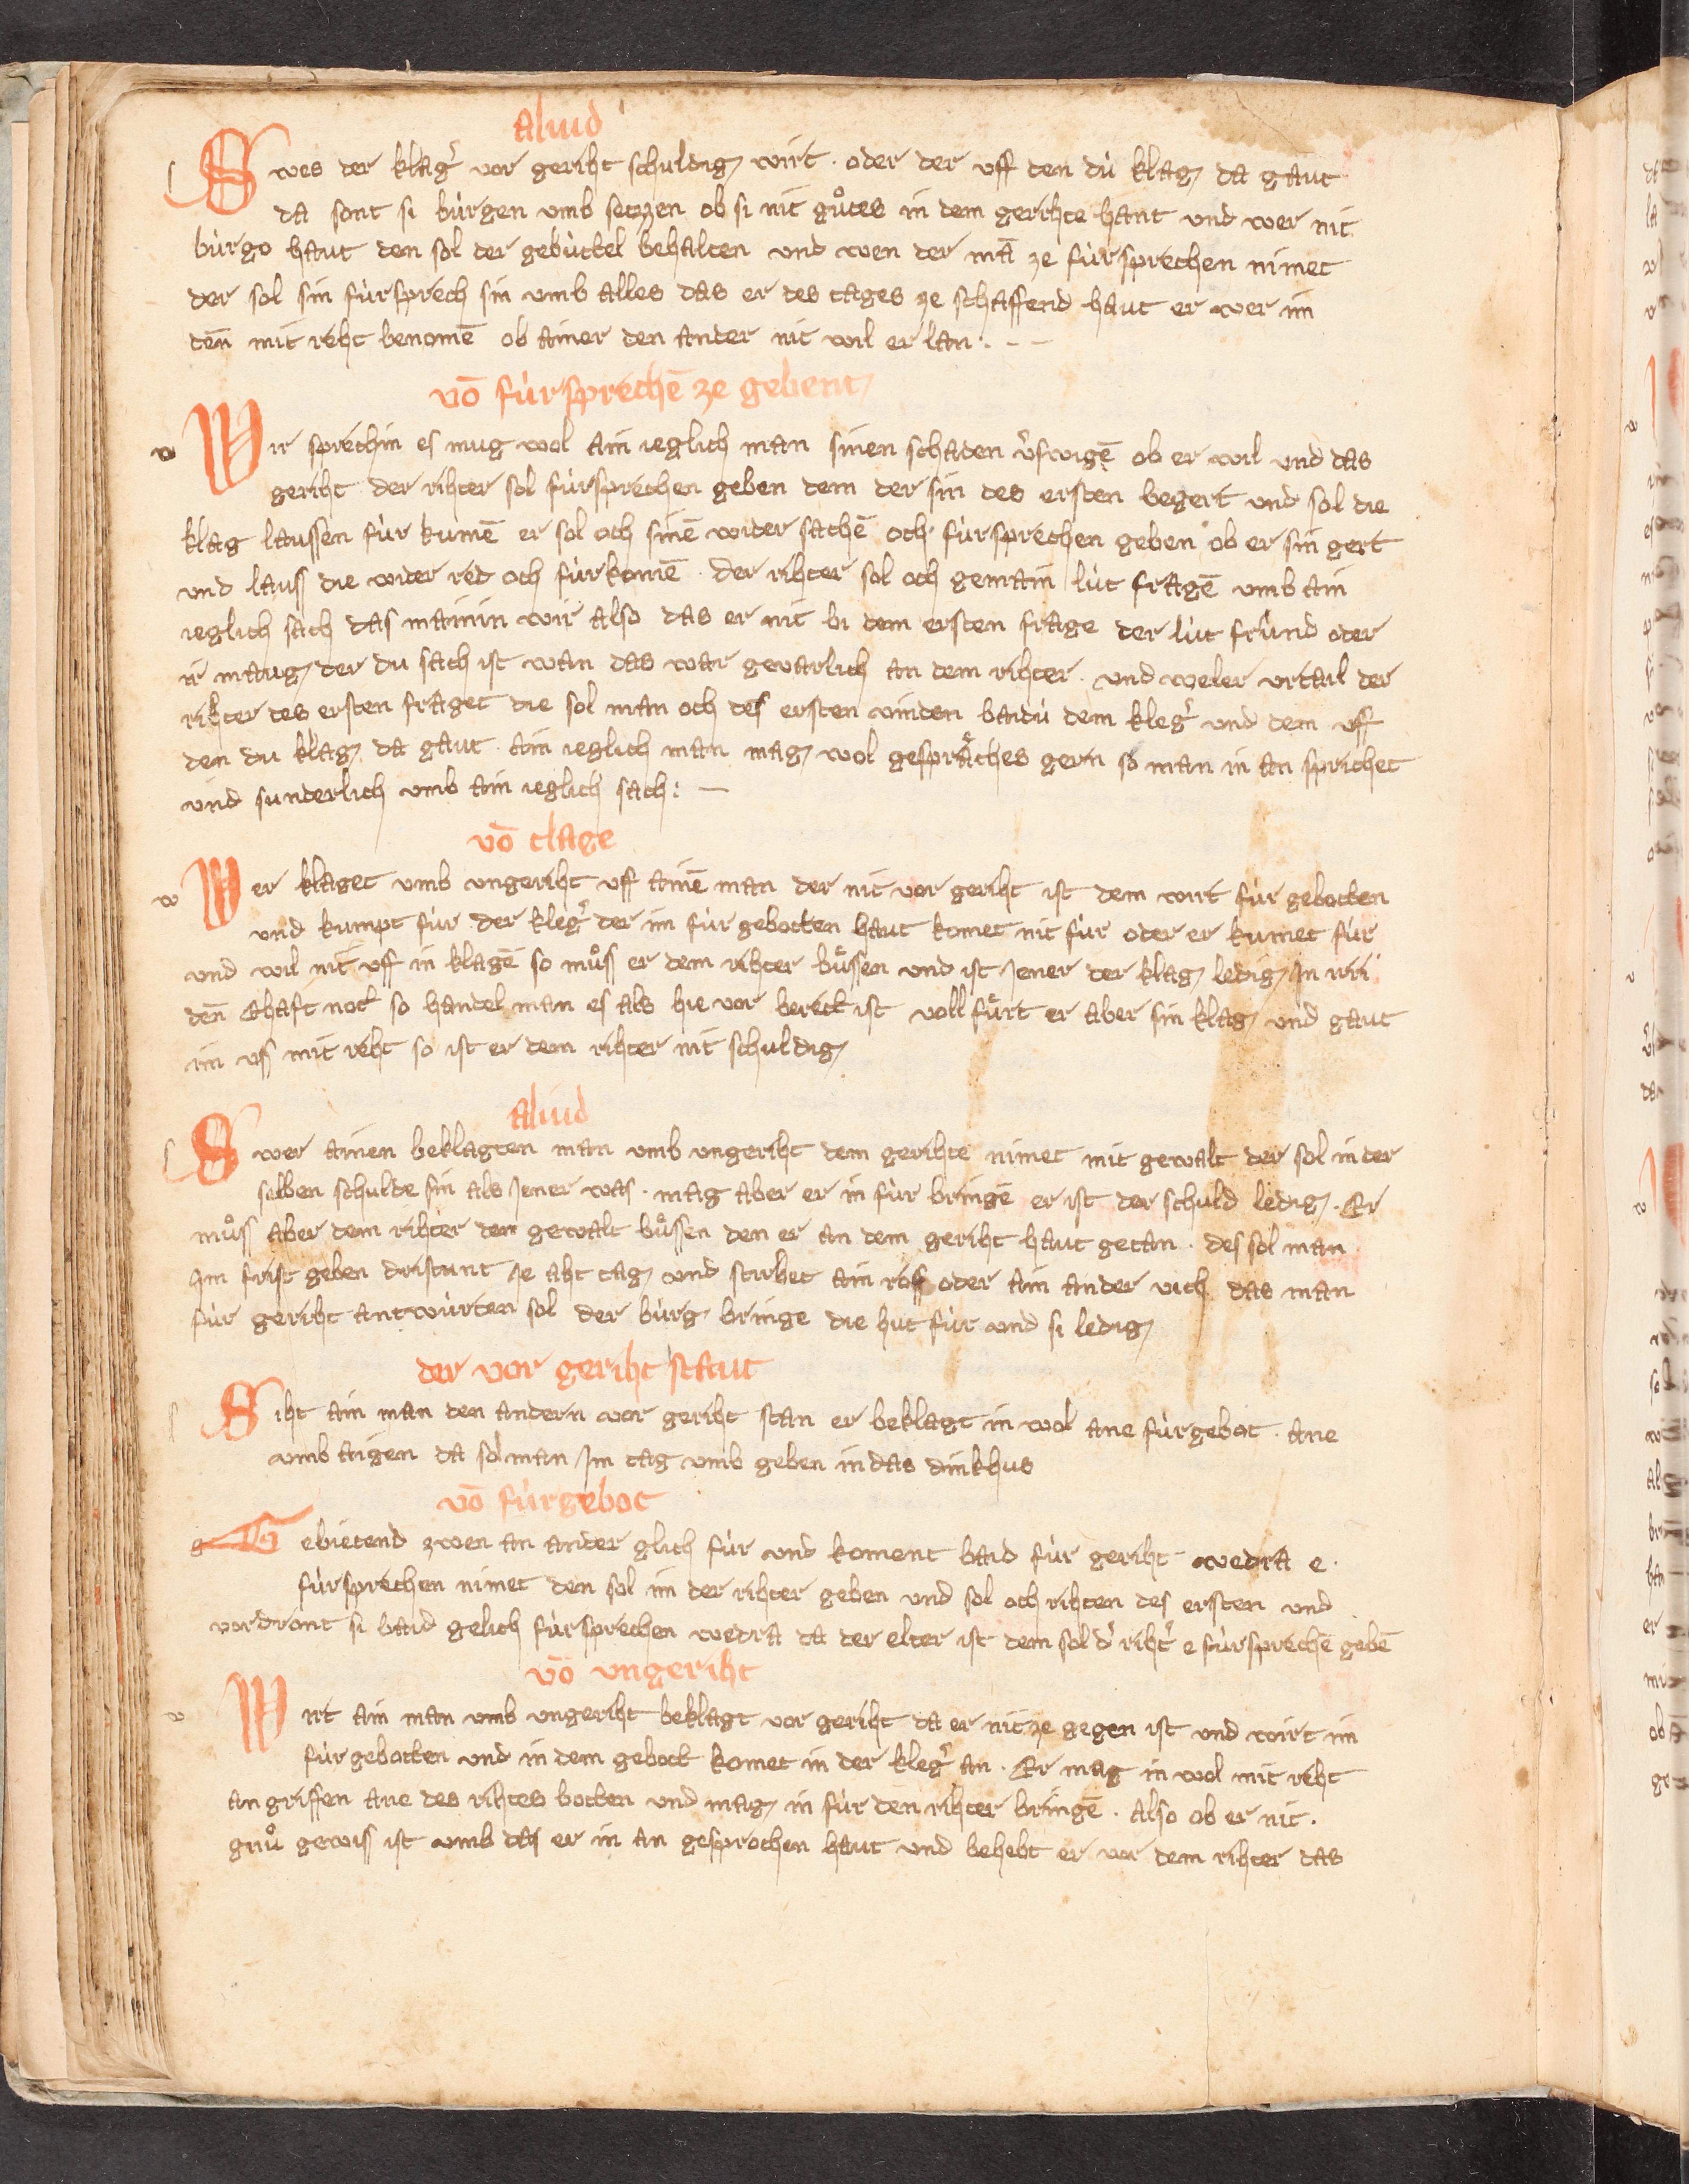 Aliud
Swes der klag͛ vor geriht schuldig wirt · oder der vff den dú klag da gaut
da sont si búrgen vmb setzzen ob si nit gůtes in dem gerihte hant vnd wer nit
búrgo haut den sol der gebúttel behalten vnd wen der mā ze fúrsprechen nimet
der sol sin fúrsprech sin vmb alles das er des tages ze schaffend haut er wer im
den̄ mit reht benomē ob ainer den ander nit wil er lan · – –
vō fúrsprechē ze gebent
Wir sprechin es mug wol ain ieglich man sinen schaden v͛swigē ob er wil vnd das
geriht der rihter sol fúrsprechen geben dem der sin des ersten begert vnd sol die
klag laussen fúr kumē er sol och sinē wider sachē och fúrsprechen geben ob er sin gert
vnd lauss die wider red och fúrkomē · der rihter sol och gemain lút fragē vmb ain
ieglich sach das mainin wir also das er nit bi dem ersten frage der lút frúnd oder
ir maug der du sach ist wan das war geuarlich an dem rihter · vnd weler vrtail der
rihter des ersten fraget die sol man och des ersten vinden baidú dem kleg͛ vnd dem vff
den du klag da gaut · ain ieglich man mag wol gespräches gern so man in an sprichet
vnd sunderlich vmb ain ieglich sach : –
vō clage
Wer klaget vmb vngeriht vff ainē man der nit vor geriht ist dem wirt fúr gebotten
vnd kumpt fúr der kleg͛ der im fúr gebotten haut komet nit fúr oder er kumet fúr
vnd wil nit vff in klagē so můss er dem rihter bůssen vnd ist Jener der klag ledig In irri
den̄ Ehaft not so handel man es als hie vor beret ist voll fůrt er aber sin klag vnd gaut
im vss mit reht so ist er dem rihter nit schuldig
Aliud
Swer ainen beklagten man vmb vngeriht dem gerihte nimet mit gewalt der sol in der
selben schulde sin als Jener was · mag aber er in fúr bringē er ist der schuld ledig · Er
můss aber dem rihter den gewalt bůssen den er an dem geriht haut getan · des sol man
Im frist geben dristunt Je aht tag vnd stirbet ain ross oder ain ander vich das man
fúr geriht antwúrten sol der búrg bringe die hut fúr vnd si ledig
der vor geriht staut
Siht ain man den andern vor geriht stan er beklagt in wol ane fúrgebot · ane
vmb aigen da sol man Im tag vmb geben in das dinkhus
vō fúrgebot
Gebietend zwen an ander glich fúr vnd koment baid fúr geriht wedra e ·
fúrsprechen nimet den sol im der rihter geben vnd sol och rihten des ersten vnd
vordront si baid gelich fúrsprechen wedra da der elter ist dem sol d͛ riht͛ e fúrsprechē gebē
vō vngeriht
Wirt ain man vmb vngeriht beklagt vor geriht da er nit ze gegen ist vnd wirt im
fúr gebotten vnd in dem gebott komet in der kleg͛ an · Er mag in wol mit reht
an griffen ane des rihtes botten vnd mag in fúr den rihter bringē · Also ob er nit ·
gnů gewiss ist vmb das er in an gesprochen haut vnd behebt er vor dem rihter das